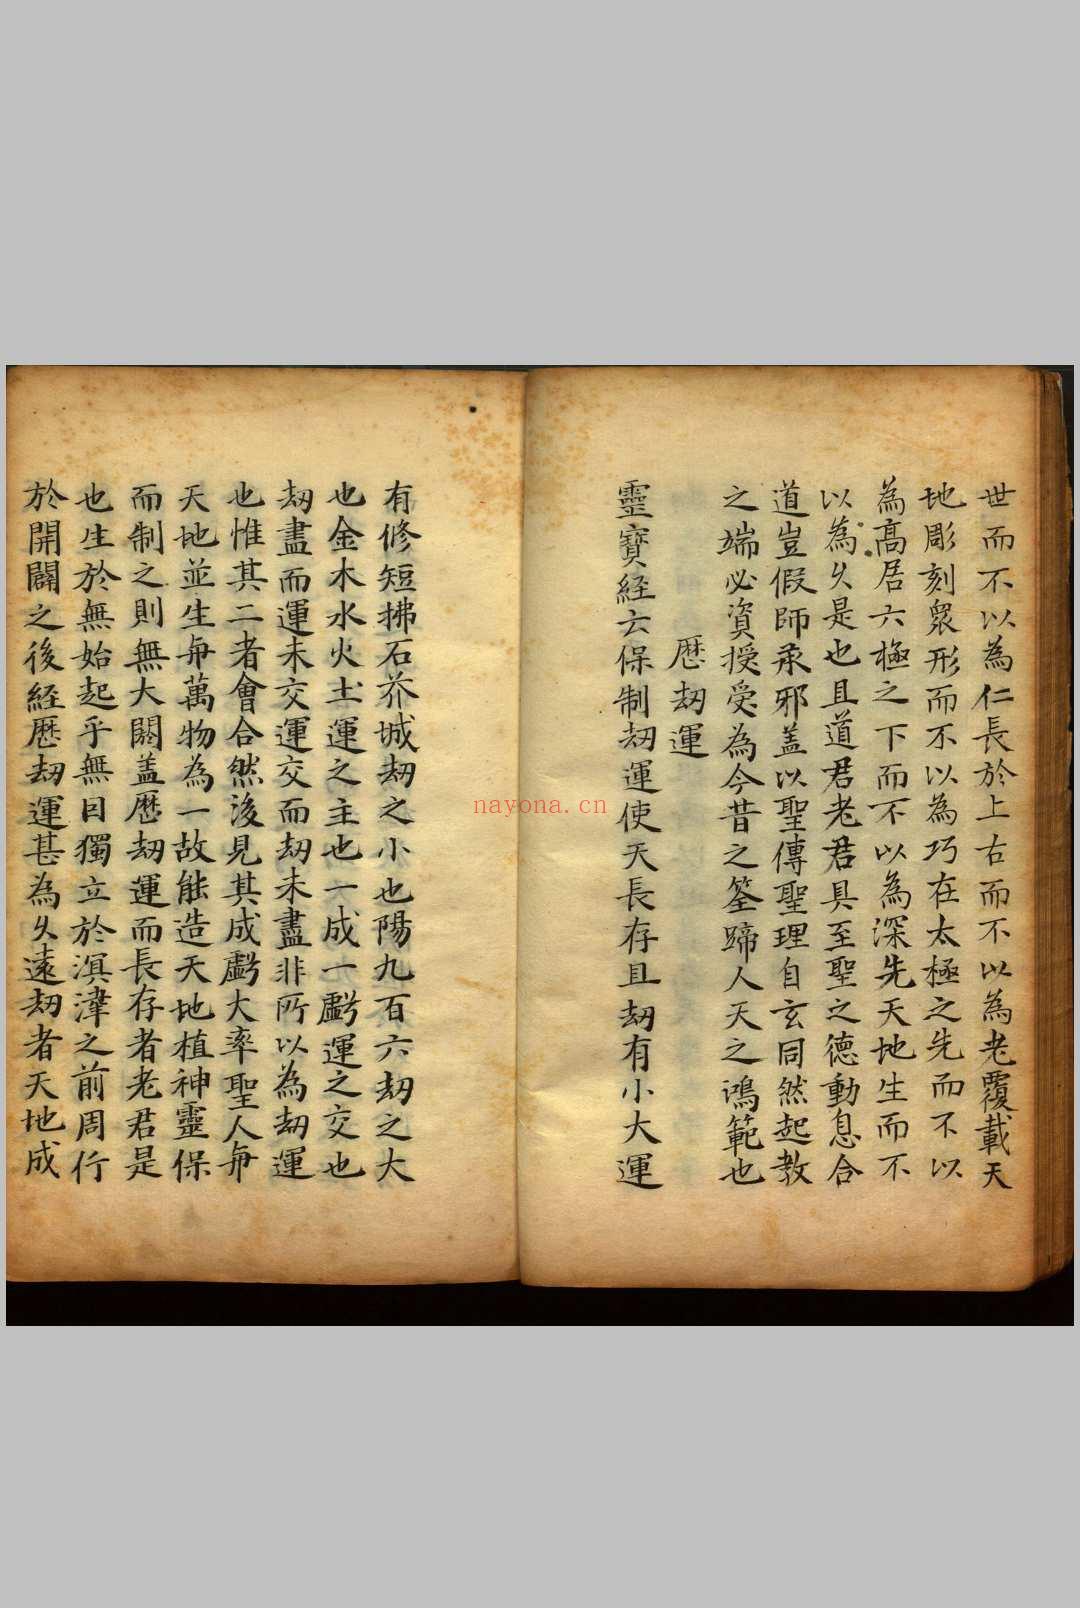 世而不以為仁長於上古而不以為老覆載天
地彫刻衆形而不以為巧在太極之先而不以
為髙居六極之下而不以為深先天地生而不
以為乆是也且道君老君具至聖之德動息合
道豈假師承邪盖以聖傳聖理自玄同然起教
之端必資授受為今昔之筌蹄人天之鴻範也
歷劫運
靈寶経云保制劫運使天長存且劫有小大運
有修短拂石芥城劫之小也陽九百六劫之大
也金木水火土運之主也一成一虧運之交也
劫盡而運未交運交而劫未盡非所以為劫運
也惟其二者會合然後見其成虧大率聖人與
天地並生與萬物為一故能造天地植神靈保
而制之則無大闕盖歷劫運而長存者老君是
也生於無始起乎無因獨立於溟涬之前周行
於開闢之後経歷劫運甚為乆遠劫者天地成
nayona.cn